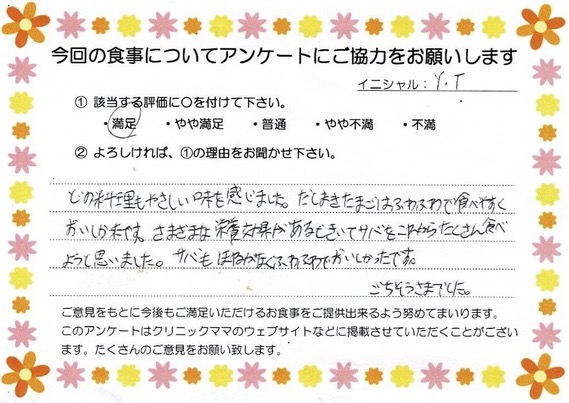 今回の食事についてアンケートにご協力をお願いします
イニシャル：Y.T
① 該当する評価に○を付けて下さい。
・満足 ・やや満足 ・普通 ・やや不満 ・不満
② よろしければ、①の理由をお聞かせ下さい。
どの料理もやさしい味を感じました。だしまきたまごはふわふわで食べやすく
おいしかったです。さまざまな栄養効果があるときいてサバをこれからたくさん食べ
ようと思いました。サバもほねがなくふわふわでおいしかったです。
ごちそうさまでした。
ご意見をもとに今後もご満足いただけるお食事をご提供出来るよう努めてまいります。
このアンケートはクリニックママのウェブサイトなどに掲載させていただくことがござい
ます。たくさんのご意見をお願い致します。